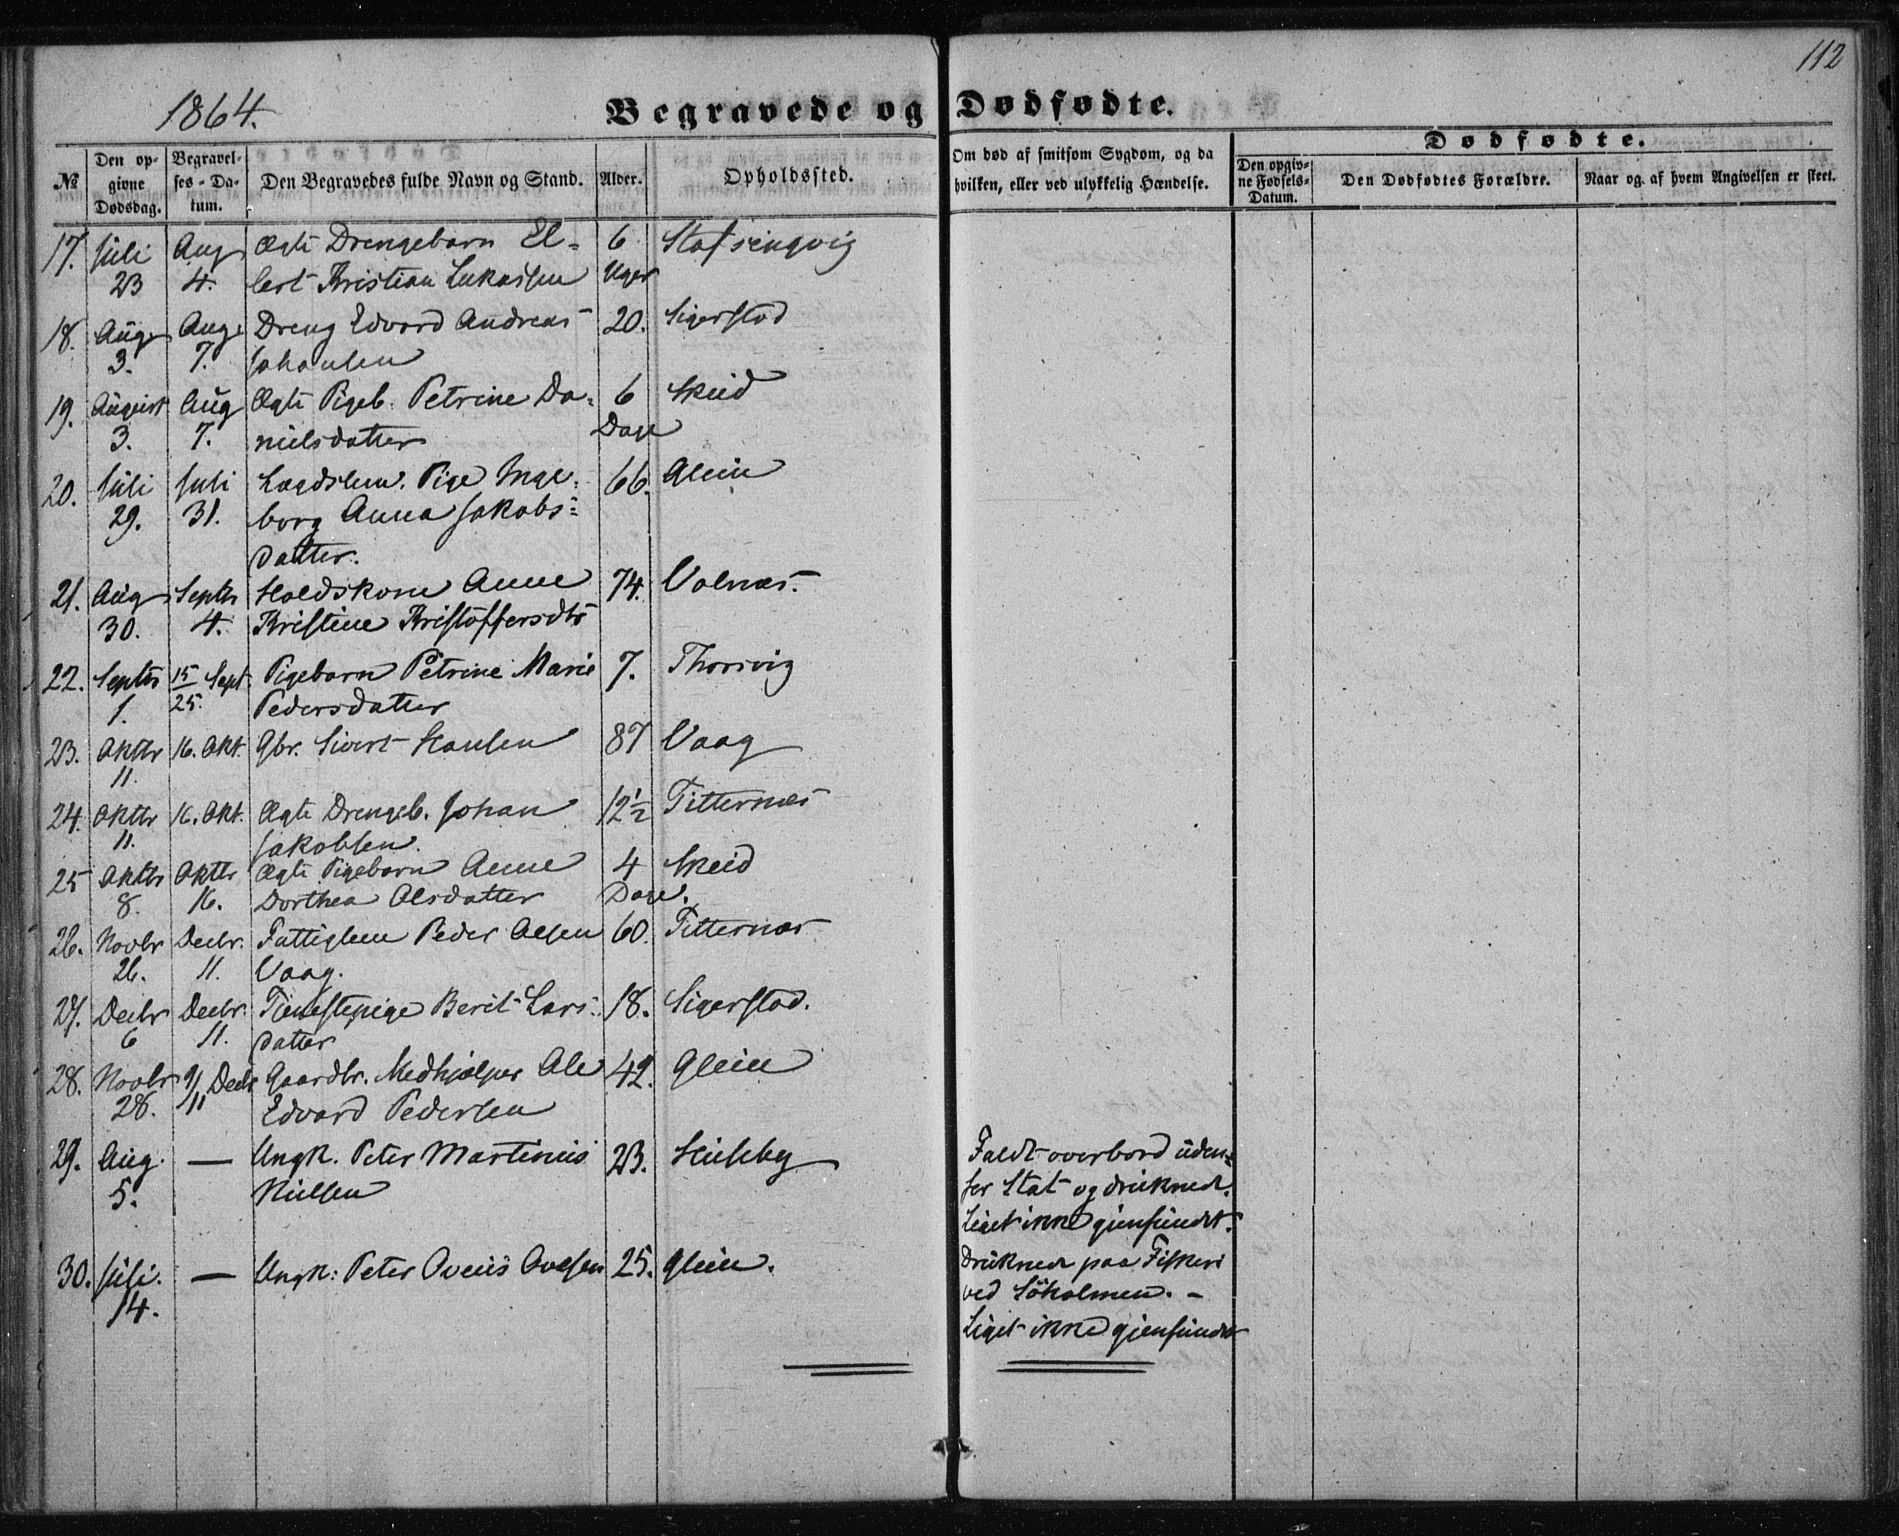 112
1864.
Begravede og Dødfødte.
№
Den opgivne Dødsdag.
Begravelses-Datum.
Den Begravedes fulde Navn og Stand.
Alder.
Opholdssted.
Om død af smitsom Sygdom, og da hvilken, eller ved ulykkelig Hændelse.
Dødfødte.
Den opgivne Fødsels-Datum.
Den Dødfødtes Forældre.
Naar og af hvem Angivelsen er skeet.
17. Juli Aug Ægte Drengebarn El- 6
23 4. lert Kristian Lukassen Uger
18. Aug Aug Dreng Edvard Andreas 20. Sigerstad
3. 7. Johansen
19. August Aug Ægte Pigeb. Petrine Da- 6 Skeid
3. 7. nielsdatter Dage
20. Juli Juli Lægdslem. Pige Inge- 66. Glein
29. 31. borg Anna Jakobs-
datter.
21. Aug Septbr Holdskone Anne 74. Valnæs.
30. 4. Kristine Kristoffersdtr
22. Septbr 15 Sept Pigebarn Petrine Marie 7. Thorsvig
1. 25. Pedersdatter
23. Oktbr 16. Okt. Gbr. Sivert Hansen 87 Vaag
11.
24. Oktbr 16. Okt. Ægte Drengeb. Johan 12½ Titternæs
11. Jakobsen.
25 Oktbr Oktbr. Ægte Pigebarn Anne 4 Skeid
8. 16. Dorthea Olsdatter Dage.
26. Novbr Decbr. Fattiglem Peder Olsen 60. Titternæs
26. 11. Vaag.
27. Decbr Decbr. Tjenestepige Berit Lars- 18. Sigerstad.
6 11. datter
28. Novbr 9/11 Decbr Gaardbr. Medhjælper Ole 42. Glein
28. Edvard Pedersen
29. Aug. — Ungk. Peter Martinus 23. Husby Faldt overbord uden-
5. Nielsen for Stat og druknede.
Liget ikke gjenfundet.
30. Juli. — Ungk: Peter Oveus Ovesen 25. Glein. Druknede paa Fiskeri
14. ved Søholmen. –
Liget ikke gjenfundet